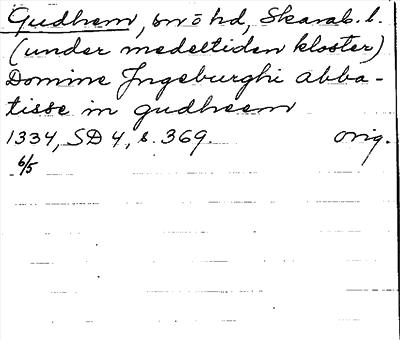 Gudhem, sn o hd, Skarab. l.
(under medeltiden kloster)
Domine Jngeburghi abba-
tisse in gudheem
1334, SD 4, s. 369. orig.
6/5